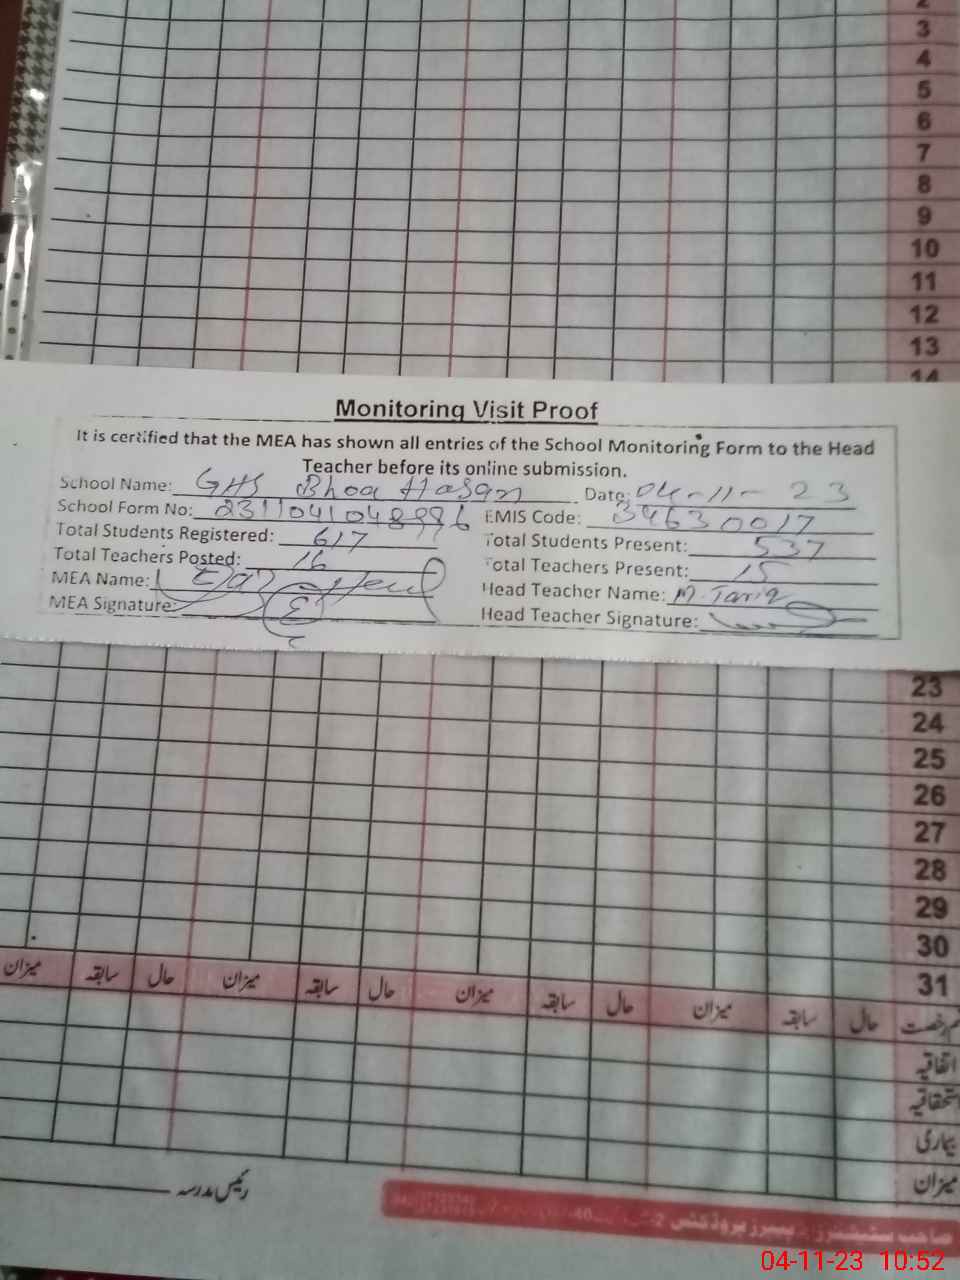 2
3
4
5
6
7
8
9
10
11
12
13
14
Monitoring Visit Proof
It is certified that the MEA has shown all entries of the School Monitoring Form to the Head
Teacher before its online submission.
School Name: GHS Bhoa Hasan Date: 04-11-23
School Form No: EMIS Code: 34630017
Total Students Registered: 617 Total Students Present: 537
Total Teachers Posted: 16 Total Teachers Present: 15
MEA Name: Head Teacher Name: M. Tariq
MEA Signature: Head Teacher Signature:
23
24
25
26
27
28
29
30
31
رخصت حال سابقہ میزان حال سابقہ میزان حال سابقہ میزان حال سابقہ میزان
اتفاقیہ
استحقاقیہ
بیماری
میزان
رئیس مدرسہ
04-11-23 10:52